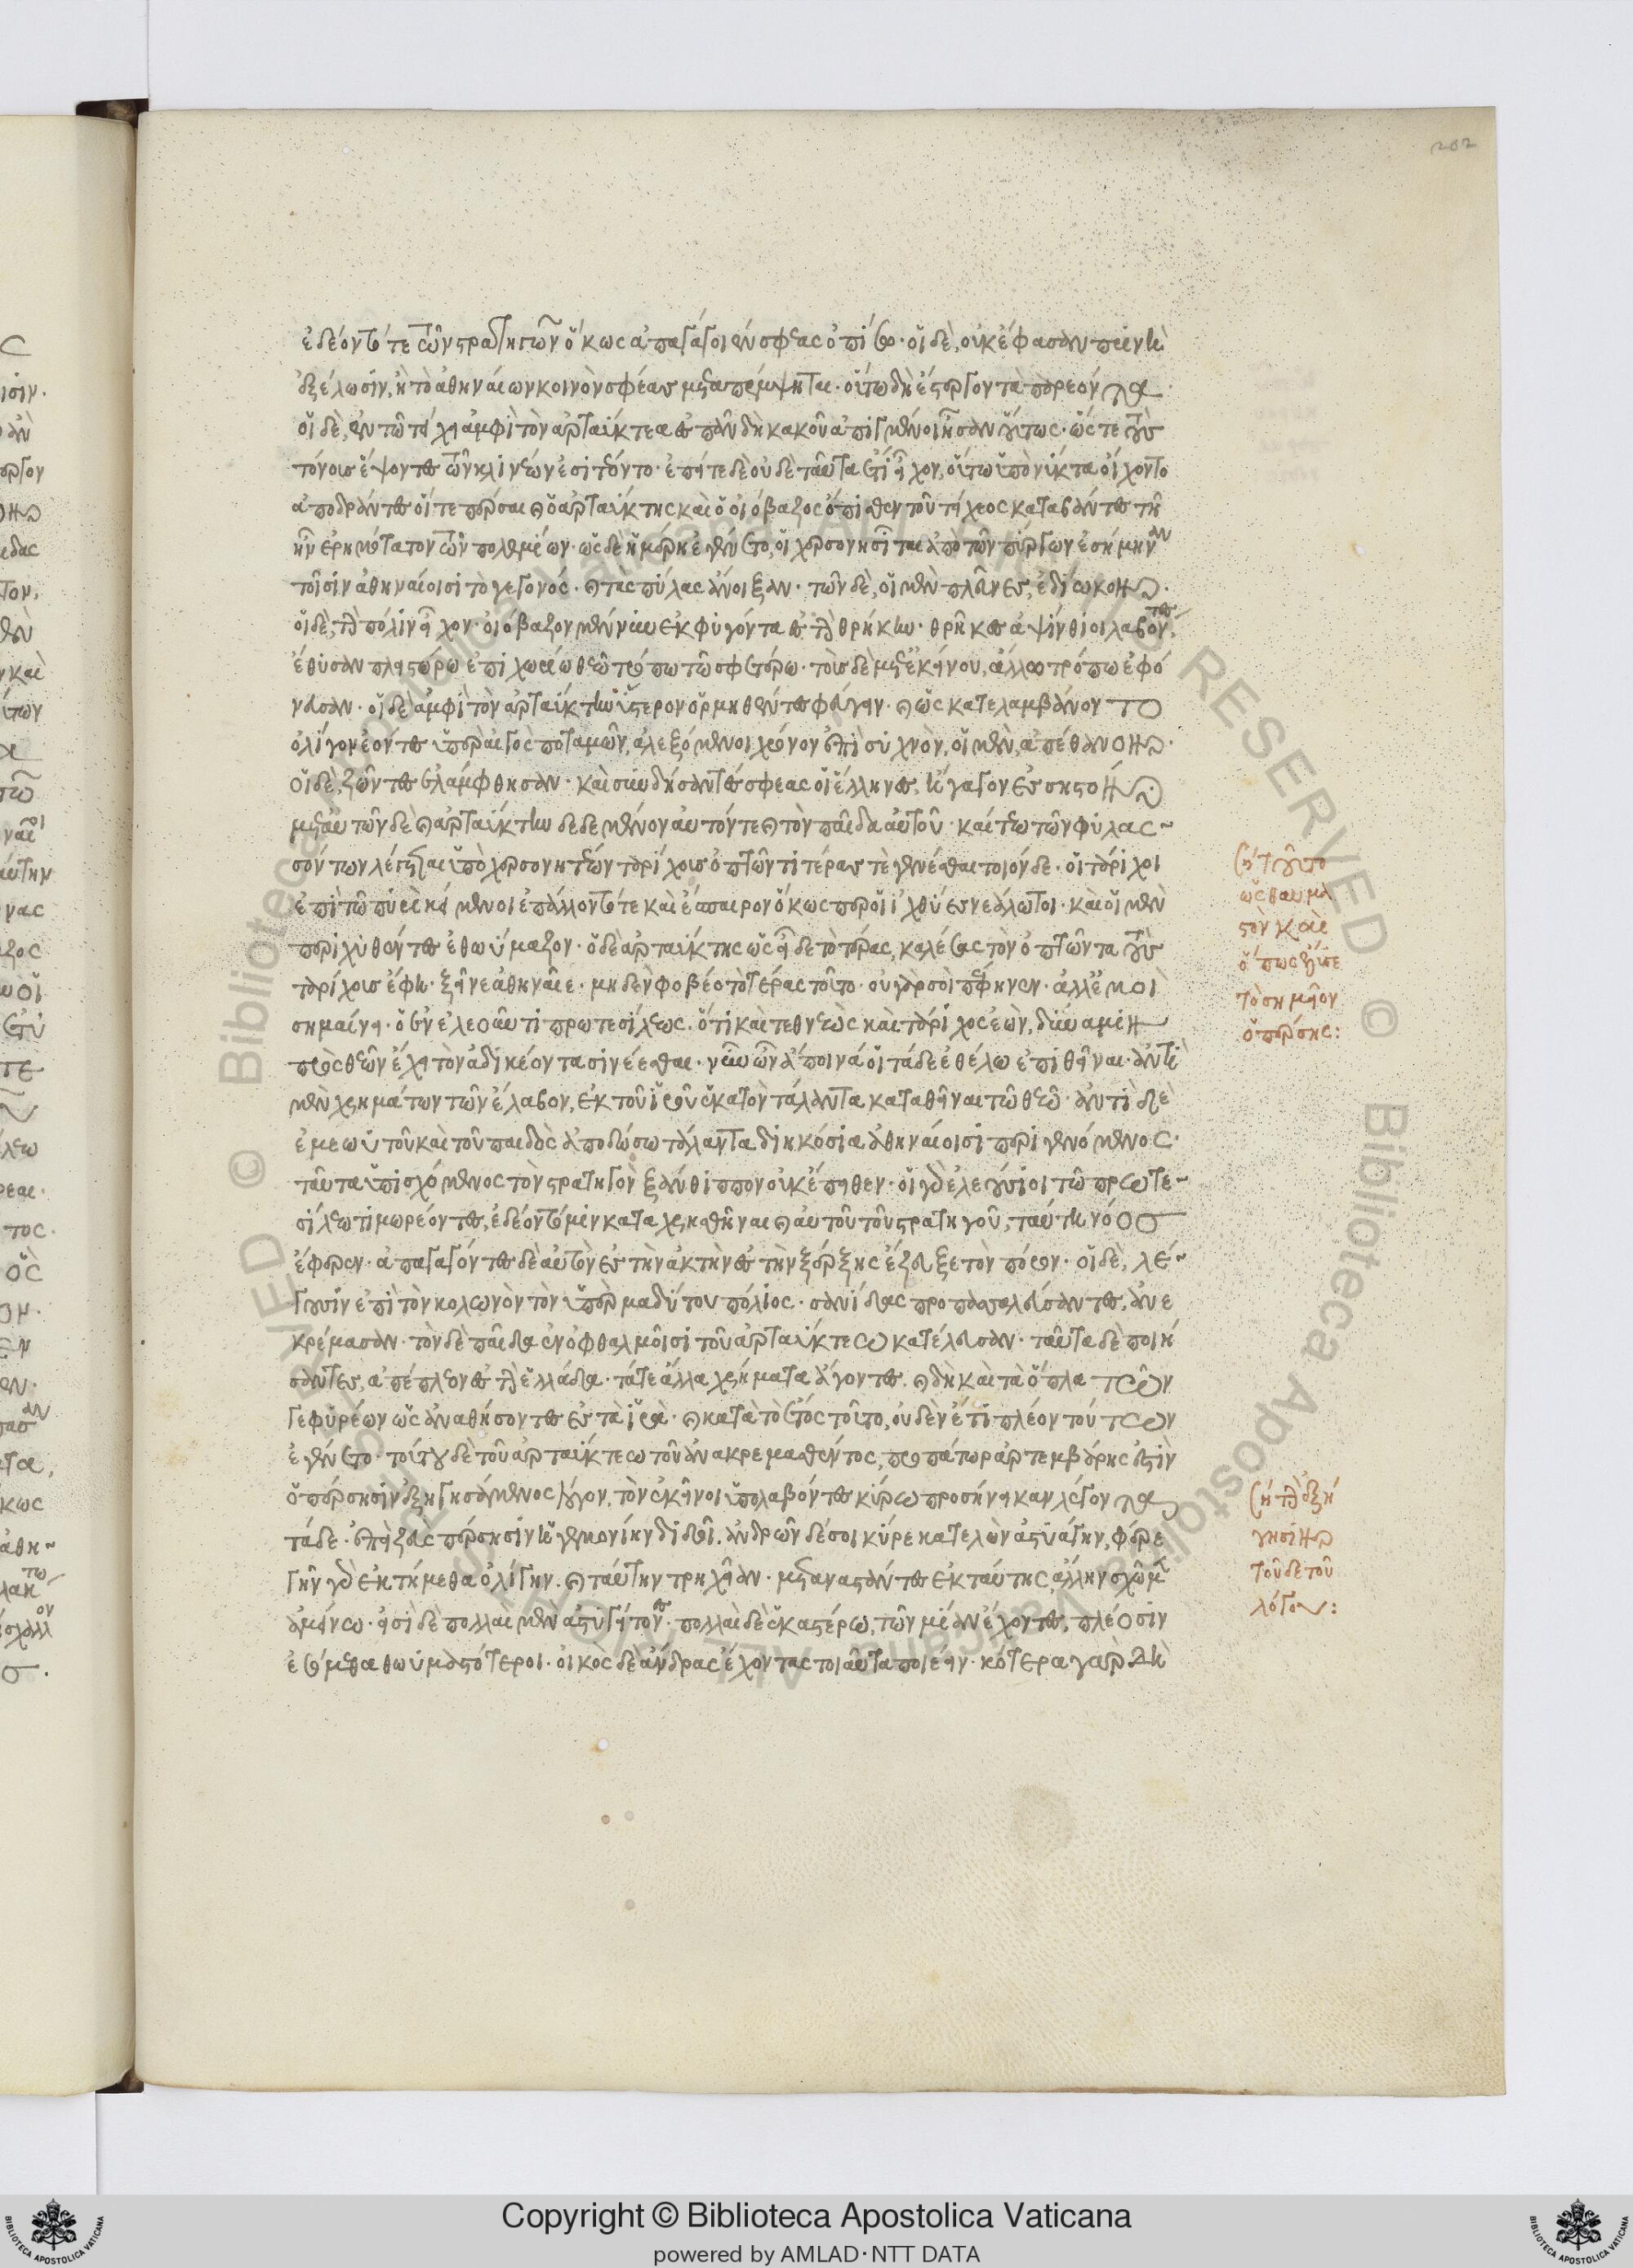 202
ἐδέοντό τε τῶν στρατηγῶν ὅκως ἀπαγάγοιεν σφέας ὀπίσω· οἱ δὲ, οὐκ ἔφασαν πρὶν ἢ
ἐξέλωσιν, ἢ τὸ ἀθηναίων κοινὸν σφέας μεταπέμψηται· οὕτω δὴ ἔστεργον τὰ παρεόντα·
οἱ δὲ, ἐν τῶ τείχει ἀμφὶ τὸν ἀρταΰκτεα ἐς πᾶν δὴ κακοῦ ἀπιγμένοι ἦσαν οὕτως· ὥστε τοὺς
τόνους ἕψοντες τῶν κλινέων ἐσιτέοντο· ἐπείτε δὲ οὐδὲ ταῦτα ἔτι εἶχον, οὕτω ὑπὸ νύκτα οἴχοντο
ἀποδράντες οἵ τε πέρσαι καὶ ὁ ἀρταΰκτης καὶ ὁ οἰόβαζος ὄπισθεν τοῦ τείχεος καταβάντες τῆ
ἦν ἐρημότατον τῶν πολεμίων· ὡς δὲ ἡμέρη ἐγένετο, οἱ χερσονησῖται ἀπὸ τῶν πύργων ἐσήμηναν
τοῖσιν ἀθηναίοισι τὸ γεγονός· καὶ τὰς πύλας ἄνοιξαν· τῶν δὲ, οἱ μὲν πλεῦνες, ἐδίωκον·
οἱ δὲ, τὴν πόλιν εἶχον· οἰόβαζον μέν νυν ἐκφυγόντα ἐς τὴν θρηίκην· θρήικες ἀψίνθιοι λαβόντες,
ἔθυσαν πλειστώρω ἐπιχωρίω θεῶ τρόπω τῶ σφετέρω· τοὺς δὲ μετ' ἐκείνου, ἄλλω τρόπω ἐφό
νευσαν· οἱ δὲ ἀμφὶ τὸν ἀρταΰκτην ὕστερον ὁρμηθέντες φεύγειν· καὶ ὡς κατελαμβάνοντο
ὀλίγον ἐόντες ὑπὲρ αἰγὸς ποταμῶν, ἀλεξόμενοι χρόνον ἐπὶ συχνὸν, οἱ μὲν, ἀπέθανον·
οἱ δὲ, ζῶντες ἐλάμφθησαν· καὶ συνδήσαντές σφεας οἱ ἕλληνες, ἤγαγον ἐς σηστόν·
μετ' αὐτῶν δὲ καὶ ἀρταΰκτην δεδεμένον αὐτόν τε καὶ τὸν παῖδα αὐτοῦ· καί τεω τῶν φυλασ
σόντων λέγεται ὑπὸ χερσονησιτέων ταρίχους ὀπτῶντι τέρας τὲ γενέσθαι τοιόνδε· οἱ τάριχοι
ἐπὶ τῶ πυρὶ κείμενοι ἐπάλλοντό τε καὶ ἤσπαιρον ὅκως περ οἱ ἰχθύες νεάλωτοι· καὶ οἱ μὲν
περιχυθέντες ἐθωύμαζον· ὁ δὲ ἀρταΰκτης ὡς εἶδε τὸ τέρας, καλέσας τὸν ὀπτῶντα τοὺς
ταρίχους ἔφη· ξεῖνε ἀθηναῖε· μηδὲν φοβέο τὸ τέρας τοῦτο· οὐ γὰρ σοὶ πέφηνεν· ἀλλ' ἐμοὶ
σημαίνει· ὁ ἐν ἐλεοῦντι πρωτεσίλεως· ὅτι καὶ τεθνεὼς καὶ τάριχος ἐὼν, δύναμιν
πρὸς θεῶν ἔχει τὸν ἀδικέοντα σινέεσθαι· νῦν ὦν ἄποινά οἱ τάδε ἐθέλω ἐπιθῆναι· ἀντὶ
μὲν χρημάτων τῶν ἔλαβον, ἐκ τοῦ ἱροῦ ἑκατὸν τάλαντα καταθῆναι τῶ θεῶ· ἀντὶ δὲ
ἐμεωυτοῦ καὶ τοῦ παιδὸς ἀποδώσω τάλαντα διηκόσια ἀθηναίοισι περιγενόμενος·
ταῦτα ὑπισχόμενος τὸν στρατηγὸν ξάνθιππον οὐκ ἔπειθεν· οἱ γὰρ ἐλεούσιοι τῶ πρωτε
σίλεω τιμωρέοντες, ἐδέοντό μιν καταχρησθῆναι καὶ αὐτοῦ τοῦ στρατηγοῦ, ταύτη νόος
ἔφερεν· ἀπαγαγόντες δὲ αὐτὸν ἐς τὴν ἀκτὴν ἐς τὴν ξέρξης ἔζευξε τὸν πόρον· οἱ δὲ, λέ
γουσιν ἐπὶ τὸν κολωνὸν τὸν ὑπὲρ μαδύτου πόλιος· σανίδας προσπασσαλεύσαντες, ἀνε
κρέμασαν· τὸν δὲ παῖδα ἐν ὀφθαλμοῖσι τοῦ ἀρταΰκτεω κατέλευσαν· ταῦτα δὲ ποιή
σαντες, ἀπέπλεον ἐς τὴν ἑλλάδα· τά τε ἄλλα χρήματα ἄγοντες, καὶ δὴ καὶ τὰ ὅπλα τῶν
γεφυρέων ὡς ἀναθήσοντες ἐς τὰ ἱρά· καὶ κατὰ τὸ ἔτος τοῦτο, οὐδὲν ἔτι πλέον τούτων
ἐγένετο· τούτου δὲ τοῦ ἀρταΰκτεω τοῦ ἀνακρεμασθέντος, προπάτωρ ἀρτεμβάρης ἐστὶν
ὁ πέρσησιν ἐξηγησάμενος λόγον, τὸν ἐκεῖνοι ὑπολαβόντες κύρω προσήνεικαν λέγοντα
τάδε· ἐπεὶ ζεὺς πέρσησιν ἡγεμονίην διδοῖ, ἀνδρῶν δὲ σοὶ κῦρε κατελὼν ἀστυάγην, φέρε
γῆν γὰρ ἐκτήμεθα ὀλίγην· καὶ ταύτην τρηχέαν· μεταναστάντες ἐκ ταύτης, ἄλλην σχῶμεν
ἀμείνω· εἰσὶ δὲ πολλαὶ μὲν ἀστυγείτονες· πολλαὶ δὲ ἑκαστέρω, τῶν μίαν ἔχοντες, πλέοσιν
ἐσόμεθα θωυμαστότεροι· οἰκὸς δὲ ἄνδρας ἔχοντας τοιαῦτα ποιέειν· κότερα γὰρ δὴ
ὅπως εἶπε
τὸ σημεῖον
ὁ πέρσης:
τοῦδε τοῦ
λόγου:
Copyright © Biblioteca Apostolica Vaticana
powered by AMLAD·NTT DATA